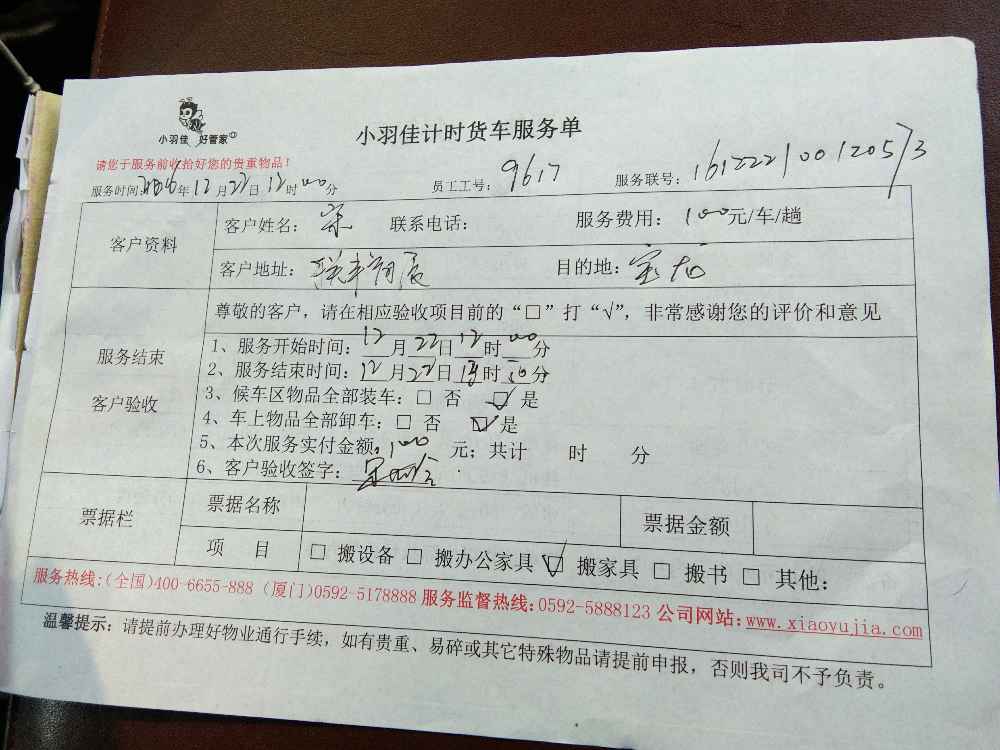 小羽佳 好管家
小羽佳计时货车服务单
请您于服务前收拾好您的贵重物品！
服务时间：2016年12月22日12时00分 员工工号：9617 服务联号：161222100120573
客户资料
客户姓名：宋 联系电话： 服务费用：100元/车/趟
客户地址： 目的地：宝龙
服务结束
客户验收
尊敬的客户，请在相应验收项目前的“□”打“√”，非常感谢您的评价和意见
1、服务开始时间：12月22日12时00分
2、服务结束时间：12月22日时分
3、候车区物品全部装车：□ 否 ☑ 是
4、车上物品全部卸车：□ 否 ☑ 是
5、本次服务实付金额：100元；共计 时 分
6、客户验收签字：
票据栏
票据名称 票据金额
项 目 □ 搬设备 □ 搬办公家具 ☑ 搬家具 □ 搬书 □ 其他：
服务热线：(全国)400-6655-888 (厦门)0592-5178888 服务监督热线：0592-5888123 公司网站：www.xiaoyujia.com
温馨提示：请提前办理好物业通行手续，如有贵重、易碎或其它特殊物品请提前申报，否则我司不予负责。